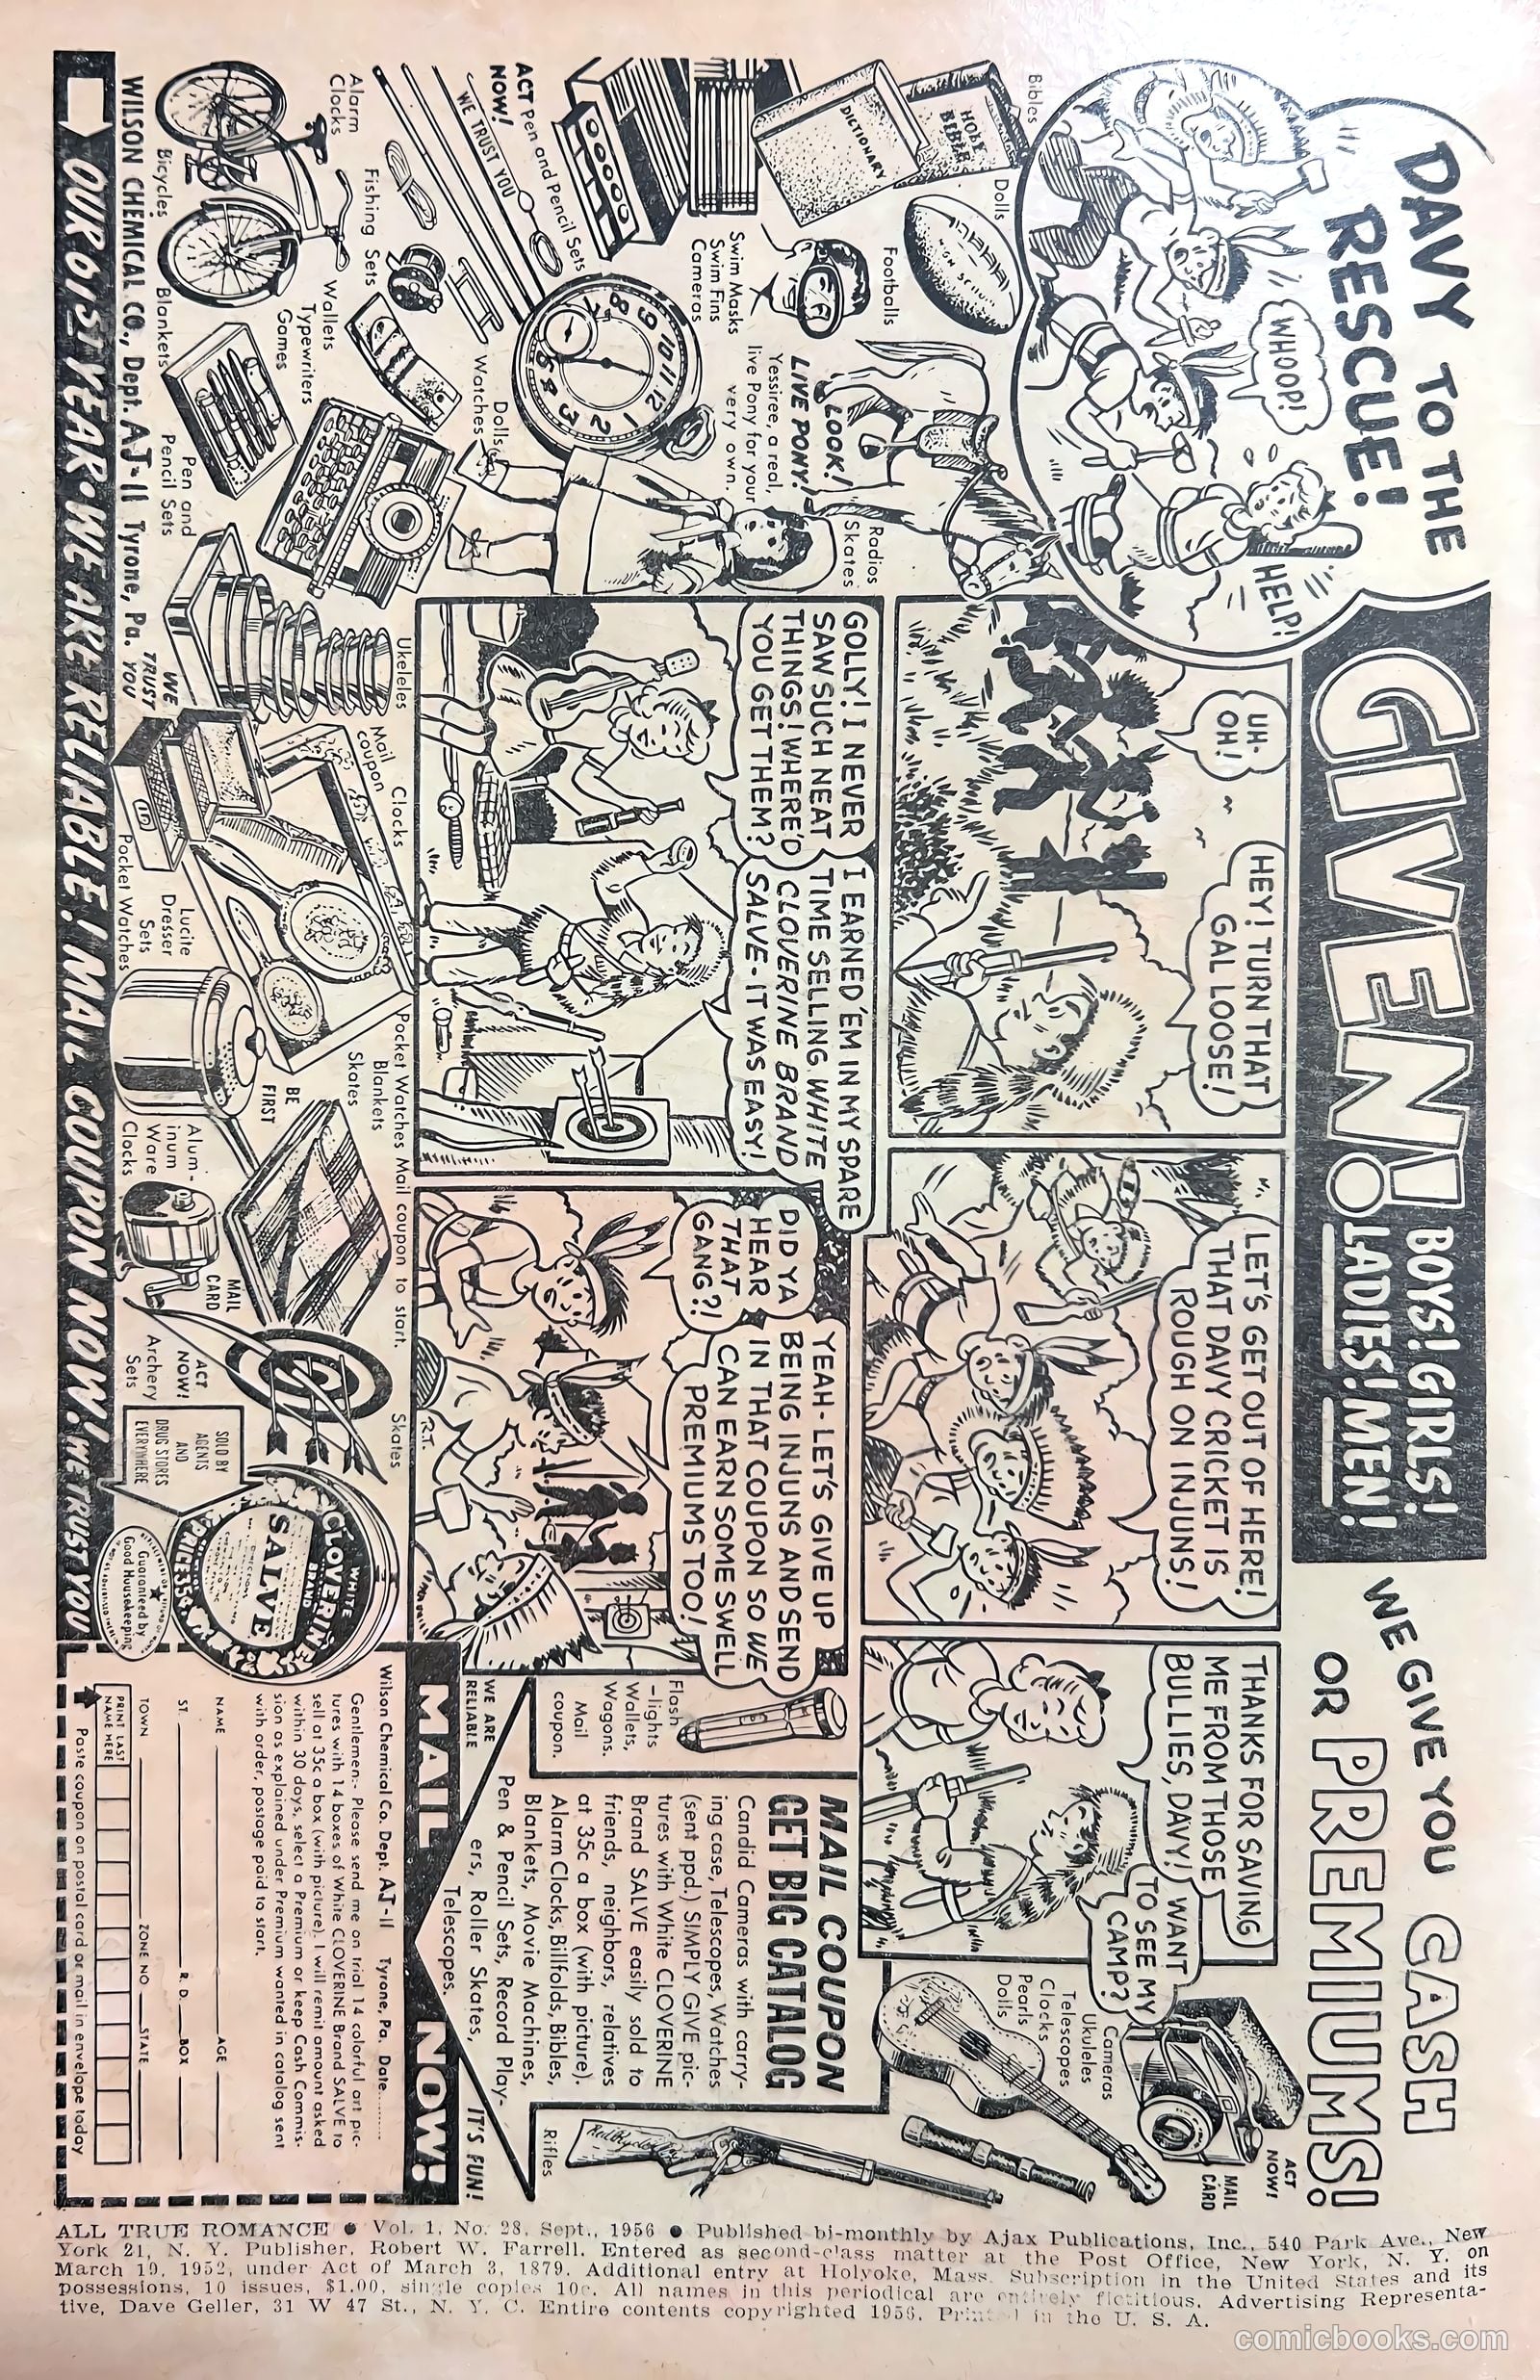 DAVY TO THE
RESCUE!
WHOOP!
HELP!
GIVEN!
BOYS! GIRLS!
LADIES! MEN!
WE GIVE YOU CASH
OR PREMIUMS!
UH-
OH!
HEY! TURN THAT
GAL LOOSE!
LET'S GET OUT OF HERE!
THAT DAVY CRICKET IS
ROUGH ON INJUNS!
THANKS FOR SAVING
ME FROM THOSE
BULLIES, DAVY!
WANT
TO SEE MY
CAMP?
GOLLY! I NEVER
SAW SUCH NEAT
THINGS! WHERE'D
YOU GET THEM?
I EARNED 'EM IN MY SPARE
TIME SELLING WHITE
CLOVERINE BRAND
SALVE - IT WAS EASY!
DID YA
HEAR
THAT
GANG?!
YEAH - LET'S GIVE UP
BEING INJUNS AND SEND
IN THAT COUPON SO WE
CAN EARN SOME SWELL
PREMIUMS TOO!
R.T.
Bibles
HOLY
BIBLE
DICTIONARY
Dolls
Footballs
Swim Masks
Swim Fins
Cameras
LOOK!
LIVE PONY!
Yessiree, a real,
live Pony for your
very own.
Radios
Skates
ACT
NOW!
Pen and Pencil Sets
WE TRUST YOU
Alarm
Clocks
Fishing Sets
Watches
Dolls
Wallets
Typewriters
Games
Bicycles
Blankets
Pen and
Pencil Sets
Ukeleles
WE
TRUST
YOU
Mail
coupon
Clocks
Lucite
Dresser
Sets
Pocket Watches
Pocket Watches Mail coupon to start.
Blankets
Skates
BE
FIRST
Alum-
inum
Ware
Clocks
MAIL
CARD
ACT
NOW!
Archery
Sets
Skates
SOLD BY
AGENTS
AND
DRUG STORES
EVERYWHERE
WHITE
CLOVERINE
BRAND
SALVE
PRICE 35¢
Guaranteed by
Good Housekeeping
Cameras
Ukuleles
Telescopes
Clocks
Pearls
Dolls
ACT
NOW!
MAIL
CARD
Flash
-lights
Wallets,
Wagons.
Mail
coupon.
MAIL COUPON
GET BIG CATALOG
Candid Cameras with carry-
ing case, Telescopes, Watches
(sent ppd.) SIMPLY GIVE pic-
tures with White CLOVERINE
Brand SALVE easily sold to
friends, neighbors, relatives
at 35c a box (with picture).
Alarm Clocks, Billfolds, Bibles,
Blankets, Movie Machines,
Pen & Pencil Sets, Record Play-
ers, Roller Skates,
Telescopes.
WE ARE
RELIABLE
IT'S FUN!
Rifles
MAIL NOW!
Wilson Chemical Co. Dept. AJ-11 Tyrone, Pa. Date..........
Gentlemen:- Please send me on trial 14 colorful art pic-
tures with 14 boxes of White CLOVERINE Brand SALVE to
sell at 35c a box (with picture). I will remit amount asked
within 30 days, select a Premium or keep Cash Commis-
sion as explained under Premium wanted in catalog sent
with order, postage paid to start.
NAME AGE
ST. R. D. BOX
TOWN ZONE NO. STATE
PRINT LAST
NAME HERE
Paste coupon on postal card or mail in envelope today
WILSON CHEMICAL CO., Dept. AJ-11 Tyrone, Pa.
OUR 61ST YEAR. WE ARE RELIABLE! MAIL COUPON NOW! WE TRUST YOU
ALL TRUE ROMANCE ● Vol. 1, No. 28, Sept., 1956 ● Published bi-monthly by Ajax Publications, Inc., 540 Park Ave., New
York 21, N. Y. Publisher, Robert W. Farrell. Entered as second-class matter at the Post Office, New York, N. Y. on
March 19, 1952, under Act of March 3, 1879. Additional entry at Holyoke, Mass. Subscription in the United States and its
possessions, 10 issues, $1.00, single copies 10c. All names in this periodical are entirely fictitious. Advertising Representa-
tive, Dave Geller, 31 W 47 St., N. Y. C. Entire contents copyrighted 1956. Printed in the U. S. A.
comicbooks.com